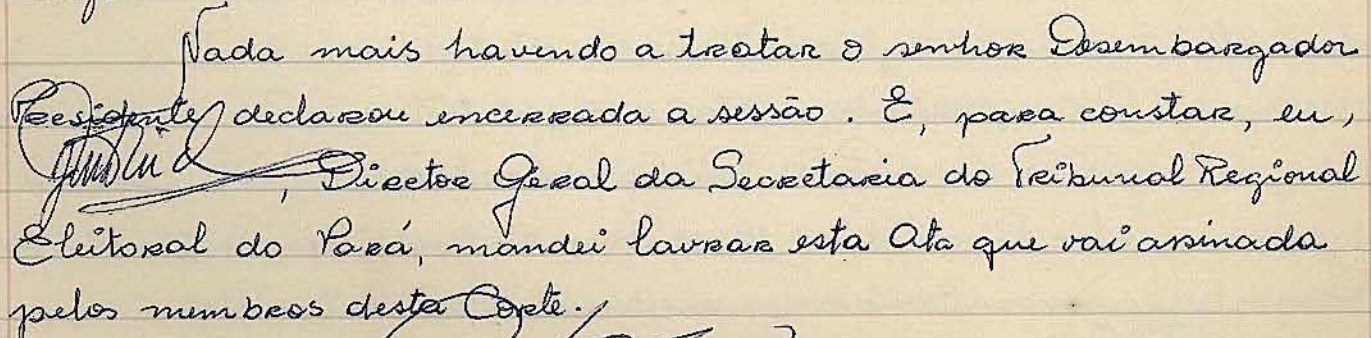 Nada mais havendo a tratar o senhor Desembargador
Presidente declarou encerrada a sessão. E, para constar, eu,
, Diretor Geral da Secretaria do Tribunal Regional
Eleitoral do Pará, mandei lavrar esta Ata que vai assinada
pelos membros desta Corte.